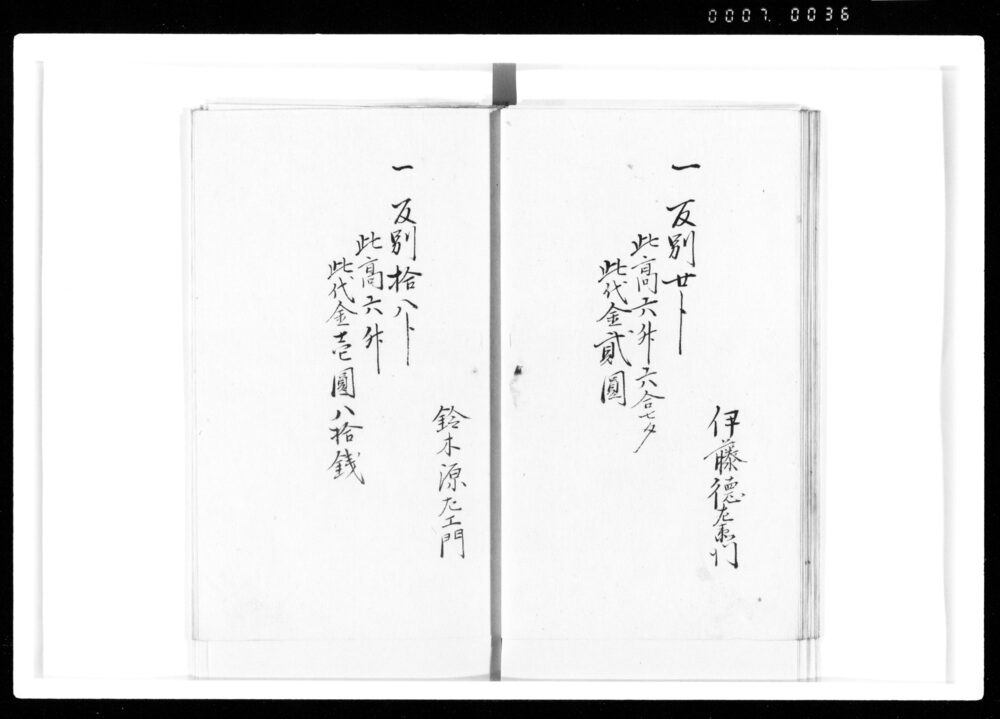 0007. 0036
伊藤徳左衛門
一 反別廿卜
此高六升六合七夕
此代金貳圓
鈴木源左エ門
一 反別拾八卜
此高六升
此代金壱圓八拾銭